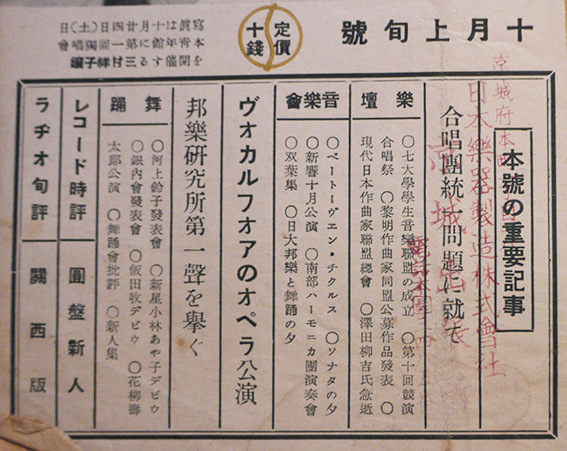 十月上旬號
定價
十錢
寫眞は十月廿四日(土)日
本靑年館に第一回獨唱會
を開催する三村祥子孃
本號の重要記事
合唱團統一問題に就て
樂壇
○七大學學生音樂聯盟の成立 ○第十回競演
合唱祭 ○黎明作曲家同盟公募作品發表 ○
現代日本作曲家聯盟總會 ○澤田柳吉氏急逝
音樂會
○ベートーヴエン・チクルス ○ソナタの夕
○新響十月公演 ○南部ハーモニカ團演奏會
○双葉集 ○日大邦樂と舞踊の夕
ヴォカルフオアのオペラ公演
邦樂硏究所第一聲を擧ぐ
舞踊
○河上鈴子發表會 ○新星小林あや子デビウ
○銀內會發表會 ○飯田收デビウ ○花柳壽
太郞公演 ○舞踊會批評 ○新人集
レコード時評 圓盤新人
ラヂオ旬評 關西版
京城府本町
日本樂器製造株式會社
京城出張
電話本局